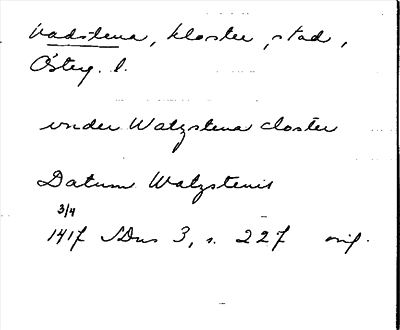 Vadstena, kloster, stad,
Österg. l.
under Watzstena closter
Datum Watzstenis
3/4
1417 SDns 3, s. 227 orig.